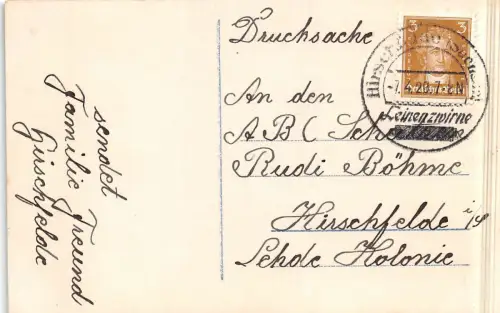 sendet
Familie Freund
Hirschfelde
Drucksache
3 3
Hirschfelde
Deutsches Reich
Leinenzwirne
An den
ABC
Rudi Böhme
Hirschfelde i/S
Kolonie